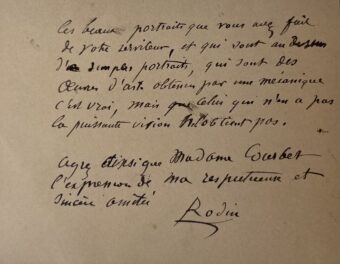 ces beaux portraits que vous avez fait
de votre serviteur, et qui sont au dessus
de simples portraits, qui sont des
Œuvres d'art obtenus par une mécanique
c'est vrai, mais que celui qui n'a pas
la puissante vision n'obtient pas.
agréz ainsi que Madame Courbet
l'expression de ma respectueuse et
sincère amitié
Rodin